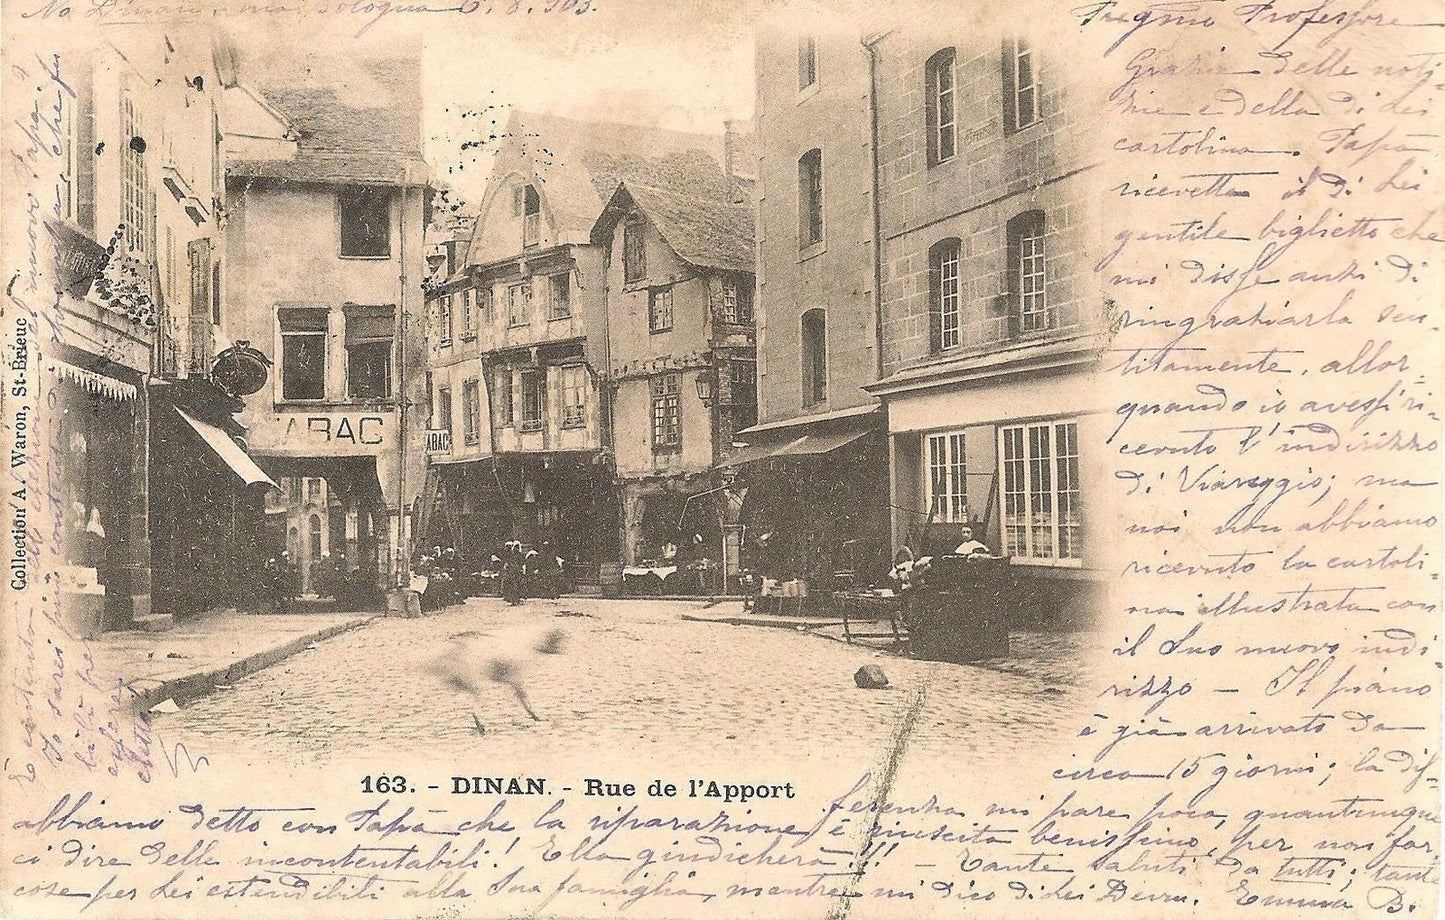 Da Dinan a mai Bologna 6. 8. 903.
Pregmo Professore
Grazie delle noti-
zie e della di Lei
cartolina. Papà
ricevette il di Lei
gentile biglietto che
mi disse anzi di
ringraziarla sen-
titamente, allor-
quando io avessi ri-
cevuto l'indirizzo
di Viareggio; ma
noi non abbiamo
ricevuto la cartoli-
na illustrata con
il Suo nuovo indi-
rizzo - Il piano
è già arrivato da
circa 15 giorni; la dif-
ferenza mi pare poca, quantunque
abbiamo detto con Papà che la riparazione è riuscita benissimo, per non far-
ci dire delle incontentabili! Ella giudicherà!!! - Tante saluti da tutti; tante
cose per Lei estendibili alla Sua famiglia, mentre mi dico di Lei Devm. Emma B.
È contento del nuovo Papa?
Io sarei più contenta
TABAC
TABAC
Collection A. Waron, St-Brieuc
163. - DINAN. - Rue de l'Apport